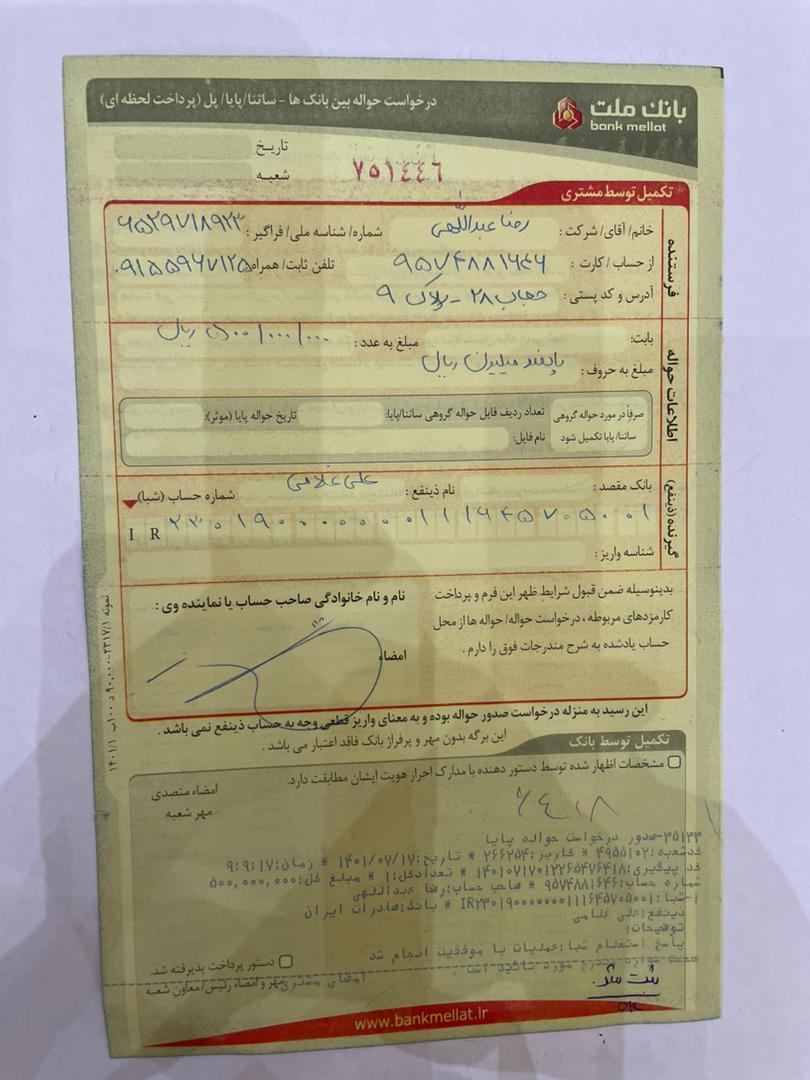 بانک ملت
bank mellat
درخواست حواله بین بانک ها - ساتنا/پایا/ پل (پرداخت لحظه ای)
تاریخ
شعبه
۷۵۱٤٤٦
تکمیل توسط مشتری
فرستنده
خانم/ آقای/ شرکت : رضا عبداللهی شماره/ شناسه ملی/ فراگیر :
از حساب/ کارت : ۹۵۷۴۸۸۱۶۴۶ تلفن ثابت/ همراه: ۰۹۱۵۵۹۶۷۱۲۵
آدرس و کد پستی : حجاب ۲۸ - پلاک ۹
اطلاعات حواله
بابت: مبلغ به عدد : ۵۰۰/۰۰۰/۰۰۰ ریال
مبلغ به حروف : پانصد میلیون ریال
صرفا در مورد حواله گروهی تعداد ردیف فایل حواله گروهی ساتنا/پایا: تاریخ حواله پایا (موثر):
ساتنا/ پایا تکمیل شود نام فایل:
گیرنده (ذینفع)
بانک مقصد : نام ذینفع : علی غلامی شماره حساب (شبا)
IR ۲۳۰۱۹۰۰۰۰۰۰۰۱۱۱۶۴۵۷۰۵۰۰۱
شناسه واریز :
بدینوسیله ضمن قبول شرایط ظهر این فرم و پرداخت
کارمزدهای مربوطه ، درخواست حواله/ حواله ها از محل
حساب یادشده به شرح مندرجات فوق را دارم .
نام و نام خانوادگی صاحب حساب یا نماینده وی :
امضاء
این رسید به منزله درخواست صدور حواله بوده و به معنای واریز قطعی وجه به حساب ذینفع نمی باشد .
این برگه بدون مهر و پرفراژ بانک فاقد اعتبار می باشد .
تکمیل توسط بانک
مشخصات اظهار شده توسط دستور دهنده با مدارک احراز هویت ایشان مطابقت دارد.
امضاء متصدی
مهر شعبه
۳۵۱۳۳-صدور درخواست حواله پایا
کدشعبه:۴۹۵۵۱۰۲ * کاربر:۲۶۶۲۵۴ * تاریخ:۱۴۰۱/۰۷/۱۷ * زمان:۹:۹:۱۷
کد پیگیری:۱۴۰۱۰۷۱۷۰۱۲۲۶۵۴۷۶۴۱۸ * تعدادکل:۱ * مبلغ کل:۵۰۰,۰۰۰,۰۰۰
شماره حساب:۹۵۷۴۸۸۱۶۴۶ * صاحب حساب:رضا عبداللهی
۱-شبا:IR۲۳۰۱۹۰۰۰۰۰۰۰۱۱۱۶۴۵۷۰۵۰۰۱ * بانک:صادرات ایران
ذینفع:علی غلامی
توضیحات:
پاسخ استعلام شبا:عملیات با موفقیت انجام شد
دستور پرداخت پذیرفته شد.
امضای مشتری
مهر و امضاء رئیس/ معاون شعبه
ثبت شد.
www.bankmellat.ir